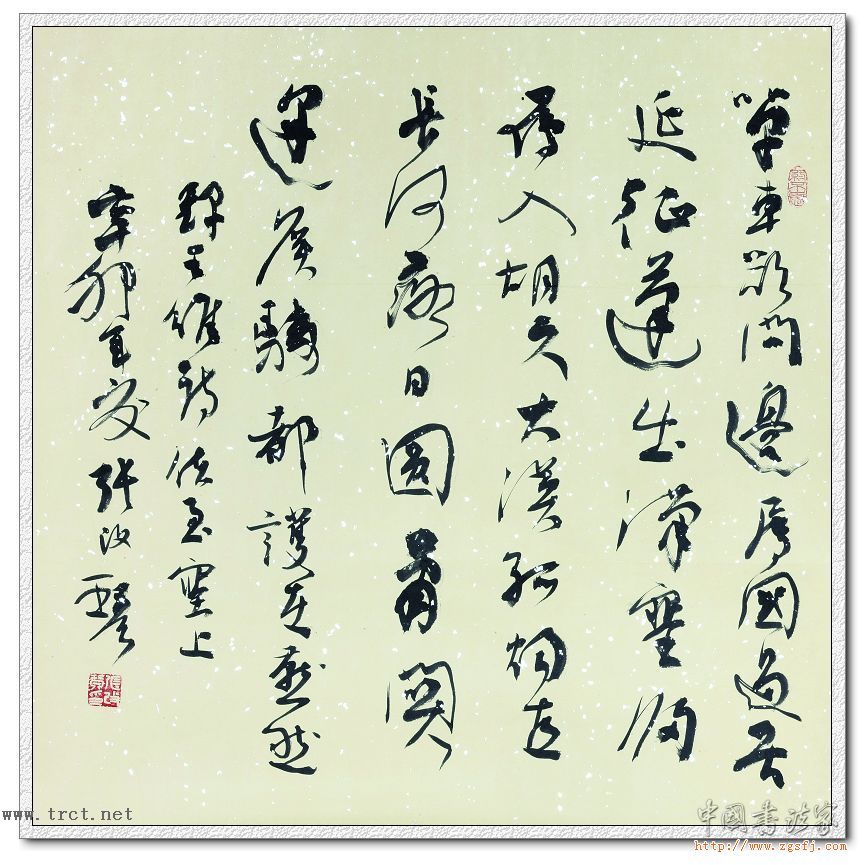 單車欲問邊屬國過居
延征蓬出漢塞歸
雁入胡天大漠孤煙直
長河落日圓蕭關
逢候騎都護在燕然
錄王維詩使至塞上
辛卯年夏張改琴
www.trct.net
中國書法家
http://www.zgsfj.com